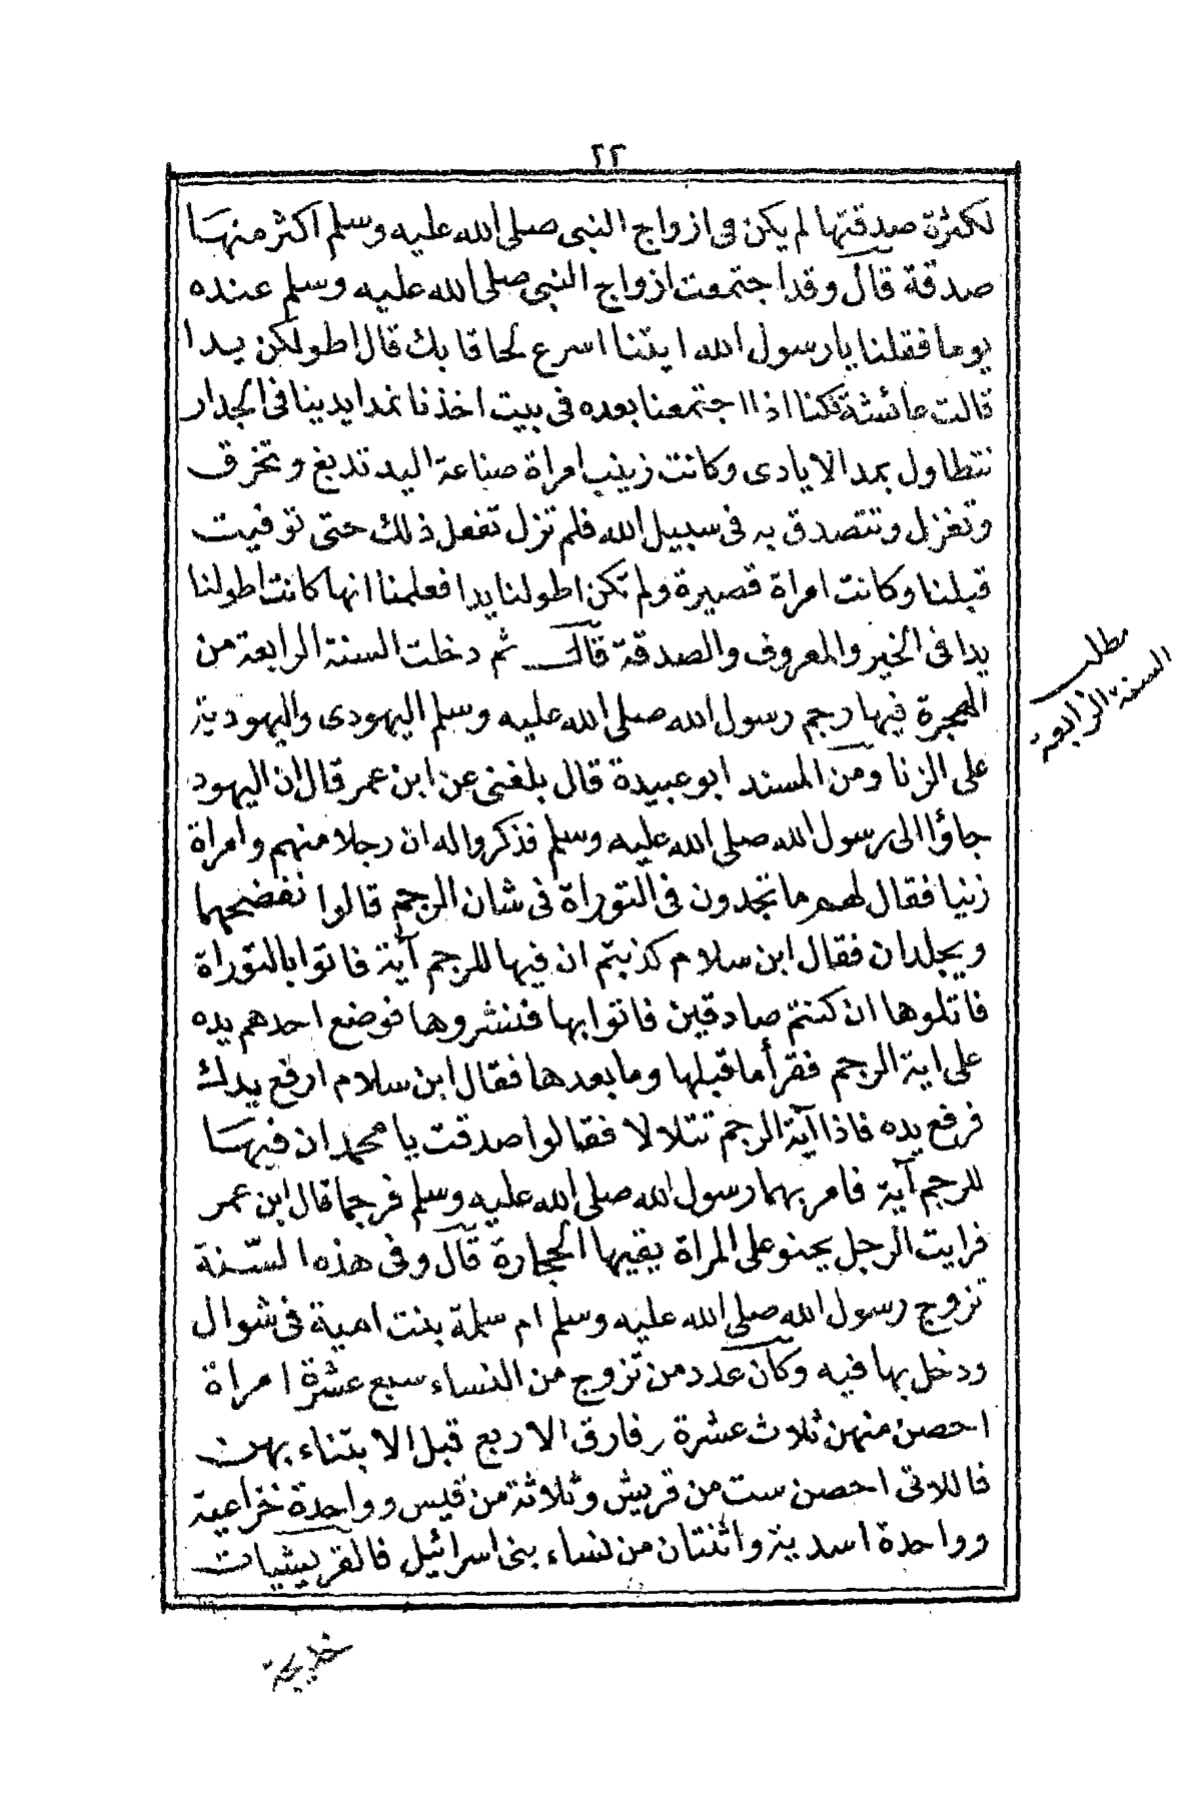 ٢٢
لكثرة صدقتها لم يكن في ازواج النبى صلى الله عليه وسلم اكثر منها
صدقة قال وقد اجتمعت ازواج النبى صلى الله عليه وسلم عنده
يوما فقلنا يا رسول الله ايتنا اسرع لحاقا بك قال اطولكن يدا
قالت عائشة فكنا اذا اجتمعنا بعده فى بيت اخذنا نمد ايدينا فى الجدار
نتطاول بمد الايادى وكانت زينب امراة صناعة اليد تدبغ وتخرق
وتغزل وتتصدق به فى سبيل الله فلم تزل تفعل ذلك حتى توفيت
قبلنا وكانت امراة قصيرة ولم تكن اطولنا يدا فعلمنا انها كانت اطولنا
يدا فى الخير والمعروف والصدقة قال ثم دخلت السنة الرابعة من
الهجرة فيها رجم رسول الله صلى الله عليه وسلم اليهودى واليهودية
على الزنا ومن المسند ابو عبيدة قال بلغنى عن ابن عمر قال ان اليهود
جاؤا الى رسول الله صلى الله عليه وسلم فذكروا له ان رجلا منهم وامراة
زنيا فقال لهم ما تجدون فى التوراة فى شان الرجم قالوا نفضحهما
ويجلدان فقال ابن سلام كذبتم ان فيها للرجم آية فاتوا بالتوراة
فاتلوها ان كنتم صادقين فاتوا بها فنشروها فوضع احدهم يده
على اية الرجم فقرأ ما قبلها وما بعدها فقال ابن سلام ارفع يدك
فرفع يده فاذا آية الرجم تتلالا فقالوا صدقت يا محمد ان فيها
للرجم آية فامر بهما رسول الله صلى الله عليه وسلم فرجما قال ابن عمر
فرايت الرجل يحنو على المراة يقيها الحجارة قال وفى هذه السنة
تزوج رسول الله صلى الله عليه وسلم ام سلمة بنت امية فى شوال
ودخل بها فيه وكان عدد من تزوج من النساء سبع عشرة امراة
احصن منهن ثلاث عشرة وفارق الاربع قبل الابتناء بهن
فاللاتى احصن ست من قريش وثلاثة من قيس وواحدة خزاعية
وواحدة اسدية واثنتان من نساء بنى اسرائيل فالقريشيات
مطلب
السنة الرابعة
خديجة